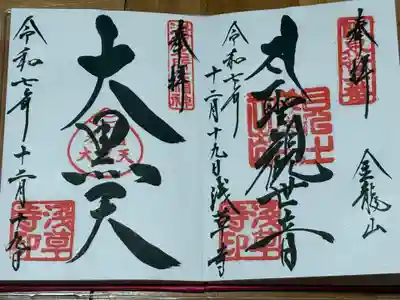 奉拝
金龍山
大聖観世音
浅草寺印
令和七年
十二月十九日浅草寺
奉拝
大黒天
令和七年 十二月十九日
浅草寺印